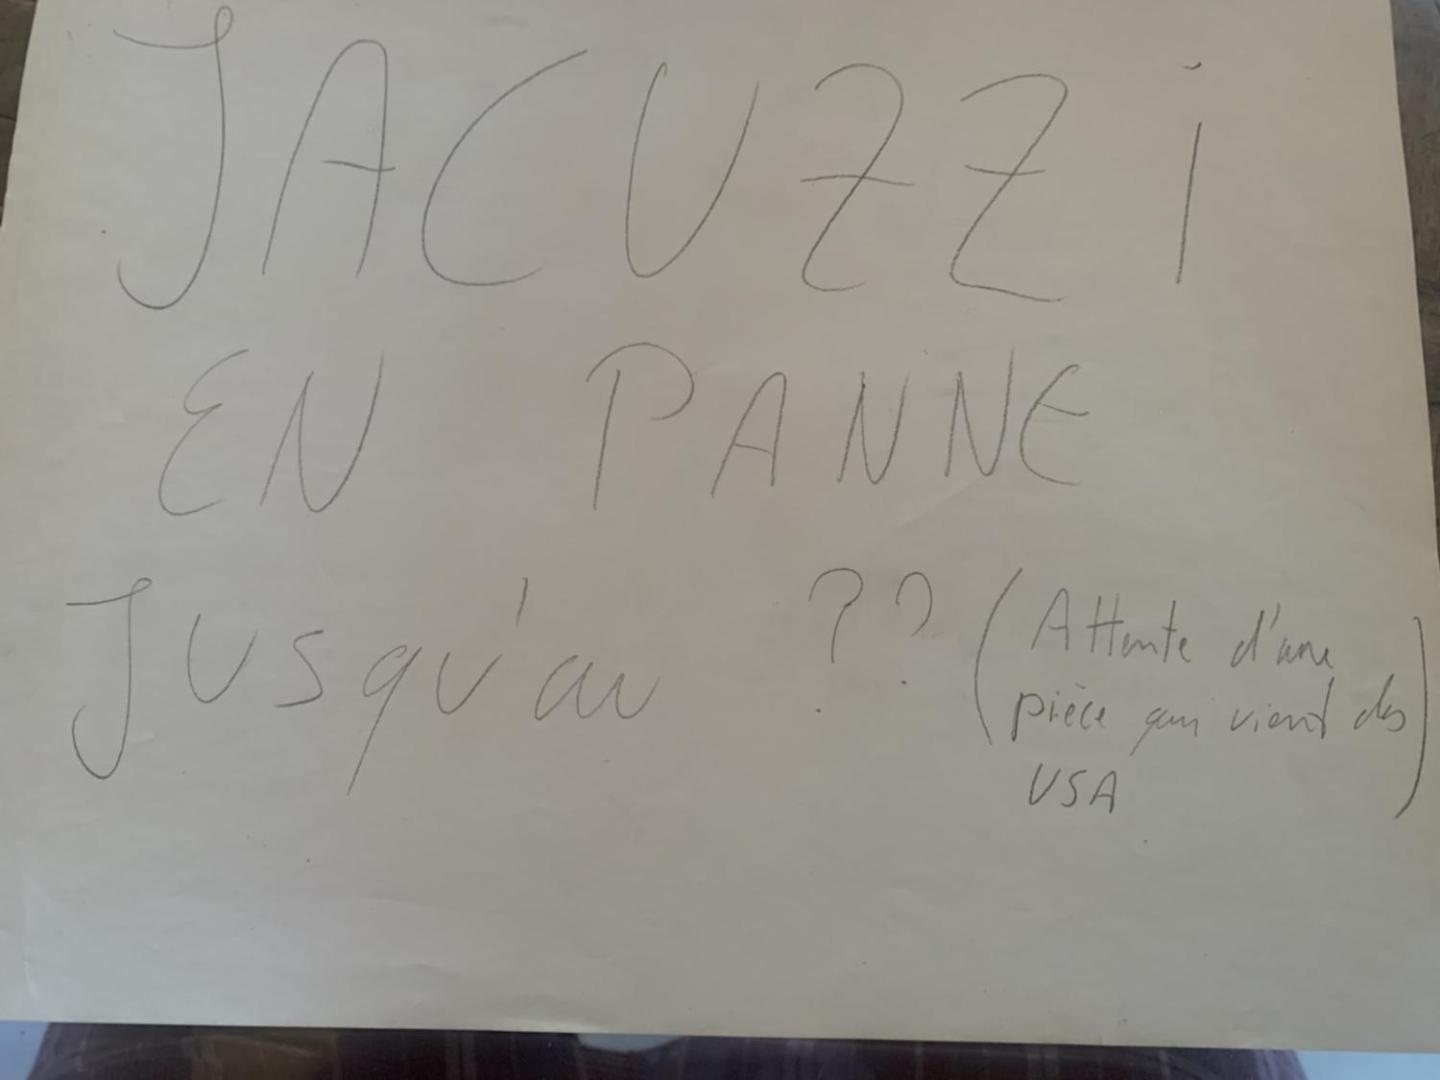 JACUZZi
EN PANNE
Jusqu'au ?? (Attente d'une
pièce qui vient des
USA)